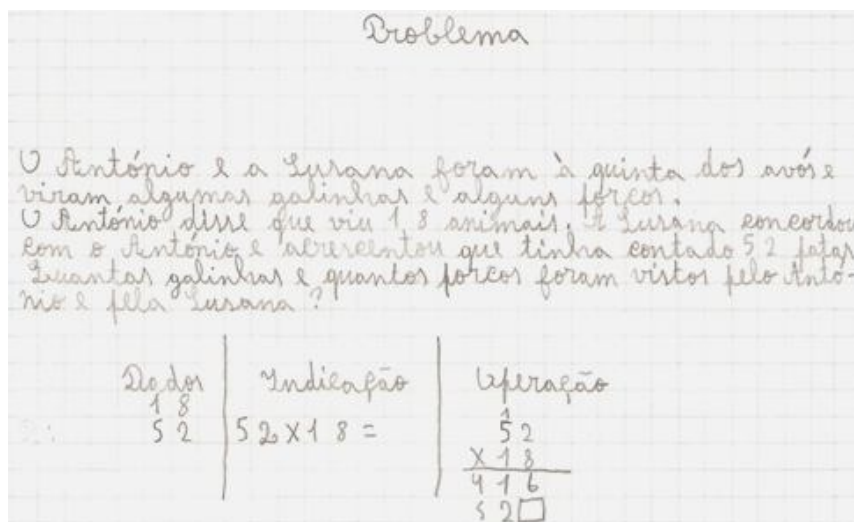 Problema
O António e a Susana foram à quinta dos avós e
viram algumas galinhas e alguns porcos.
O António disse que viu 18 animais. A Susana concordou
com o António e acrescentou que tinha contado 52 patas
Quantas galinhas e quantos porcos foram vistos pelo Antó-
nio e pela Susana?
Dados Indicação Operação
18 1
52 52x18= 52
x18
416
52